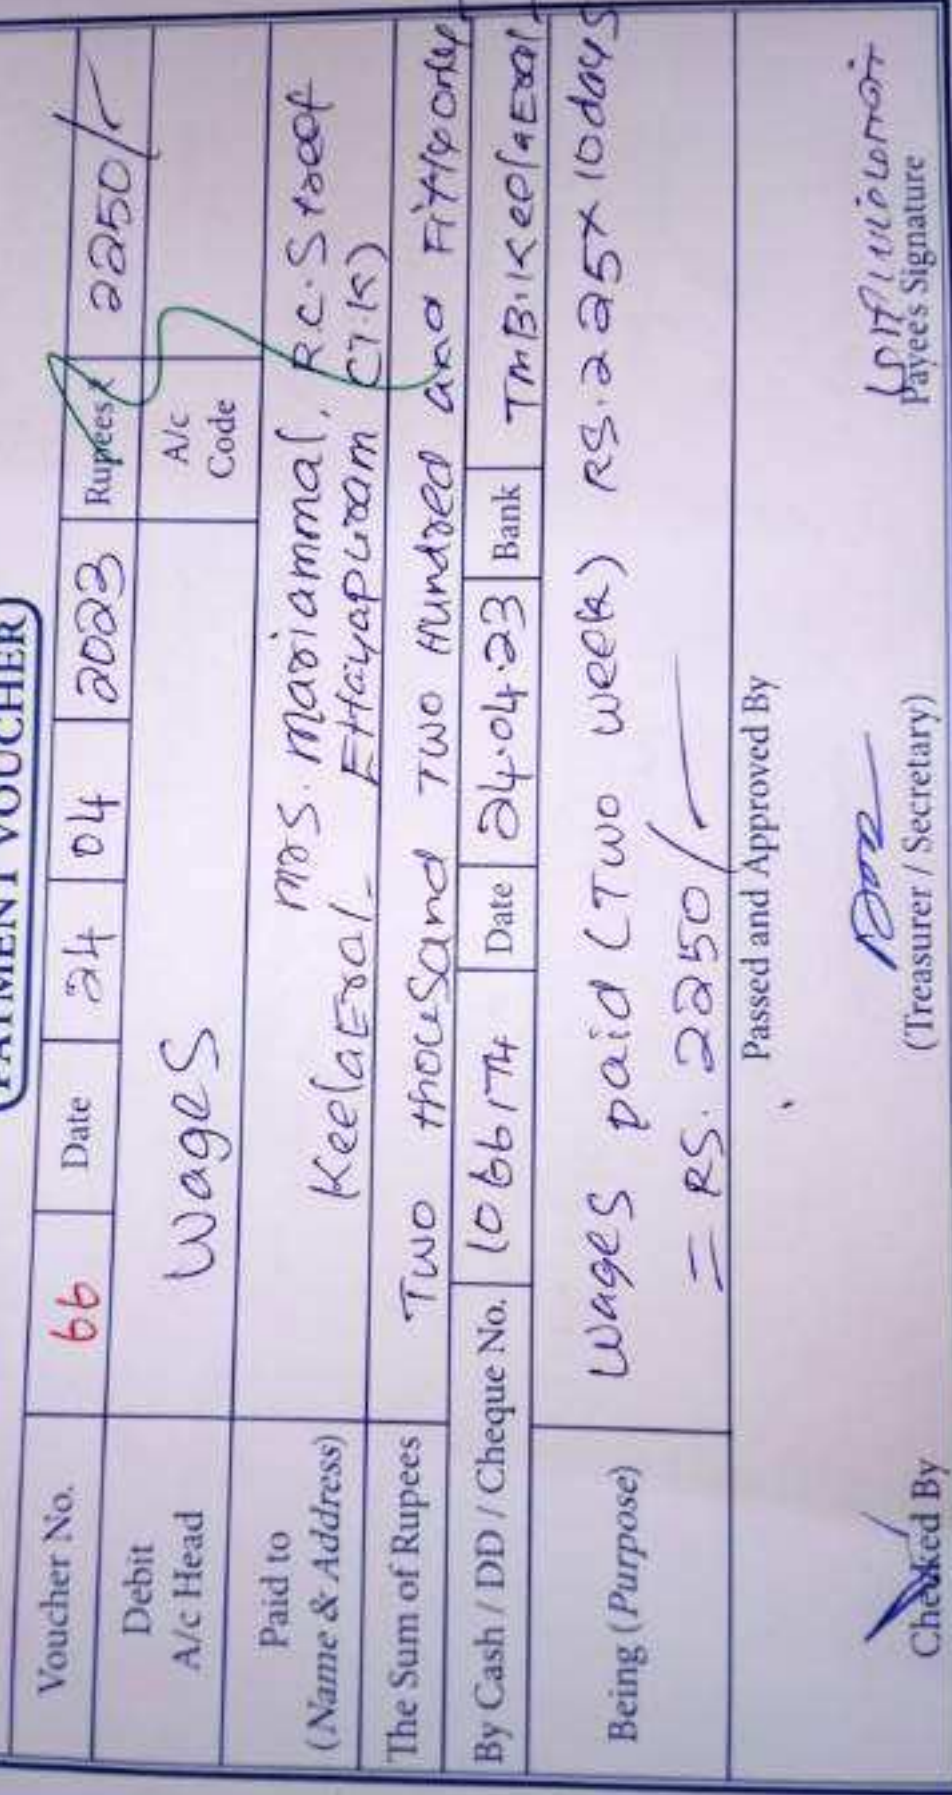 PAYMENT VOUCHER
Voucher No. 66 Date 24 04 2023 Rupees 2250/-
Debit A/c Head Wages A/c Code
Paid to Mrs. Mariammal, R.C. Street
(Name & Address) KeelaEral - Ettayapuram (T.K)
The Sum of Rupees Two thousand Two Hundred and Fifty only
By Cash / DD / Cheque No. Date 24.04.23 Bank TMB. KeelaEral
Being (Purpose) Wages paid (Two week) RS. 225 X 10 days
= RS. 2250/-
Passed and Approved By
Checked By (Treasurer / Secretary) Payees Signature